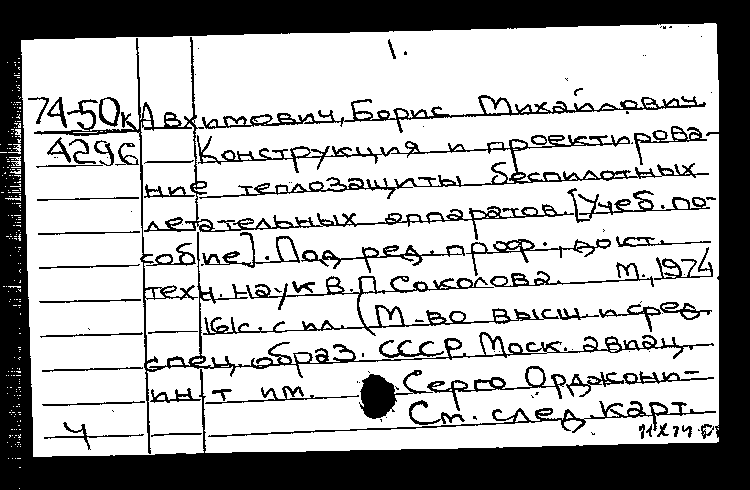 1.
74-50к Авхимович, Борис Михайлович
4296 Конструкция и проектирова-
ние теплозащиты беспилотных
летательных аппаратов. [Учеб. по-
собие]. Под ред. проф., докт.
техн. наук В.П. Соколова. М., 1974
161с. с ил. (М-во высш. и сред.
спец. образ. СССР. Моск. авиац.
ин-т им. Серго Орджони-
Ст. след. карт.
4